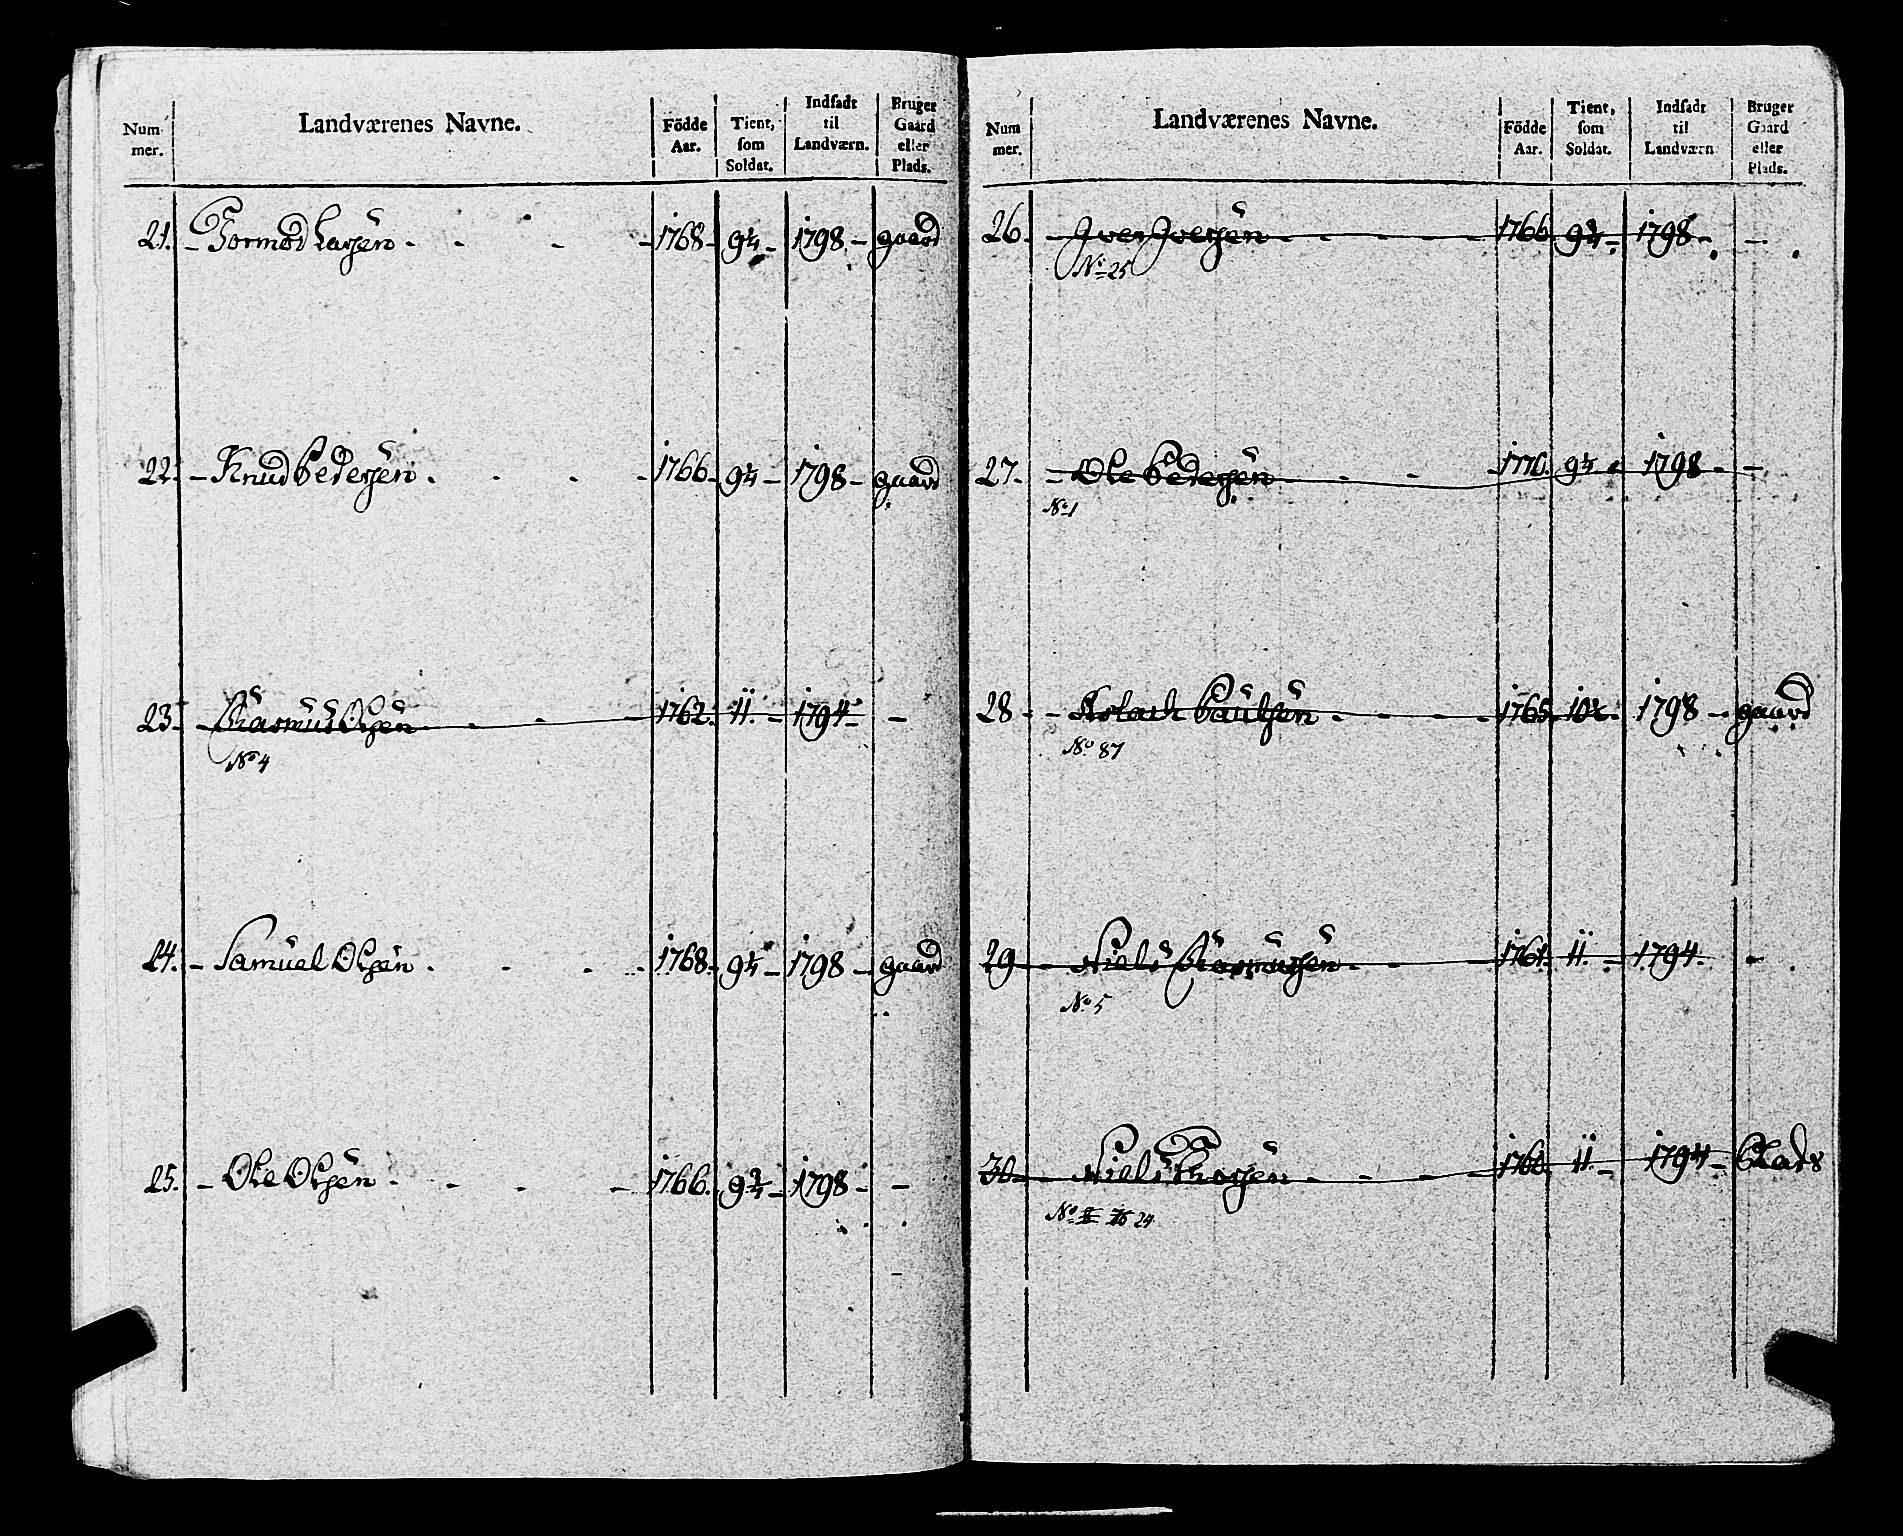 Num mer. | Landværenes Navne. | Födde Aar. | Tient, som Soldat. | Indsadt til Landværn. | Bruger Gaard eller Plads.
21. - Tormod Larsen - - - - 1768 - 9¼ - 1798 - gaard
22. - Knud Pedersen - - - - 1766 - 9¼ - 1798 - gaard
23. - Rasmus Olsen - - - 1762. 11. - 1794 - -
No 4
24. - Samuel Olsen - - - - 1768 - 9¼ - 1798 - gaard
25. - Ole Olsen - - - - 1766. 9¾ - 1798 - -
Num mer. | Landværenes Navne. | Födde Aar. | Tient, som Soldat. | Indsadt til Landværn | Bruger Gaard eller Plads.
26 - Iver Iversen - - - - 1766 9¾ - 1798 - -
No 25
27. - Ole Pedersen - - - 1770. 9¼ 1798 - -
No 1
28 - - Aslach Paulsen - - - - 1765 10½ - 1798 - gaard
No 87
29 - Niels Rasmusen - - - 1761. 11. - 1794. -
No. 5
30 - - Niels Thorsen - - - - 1760. 11. - 1794 - Plads
No 24